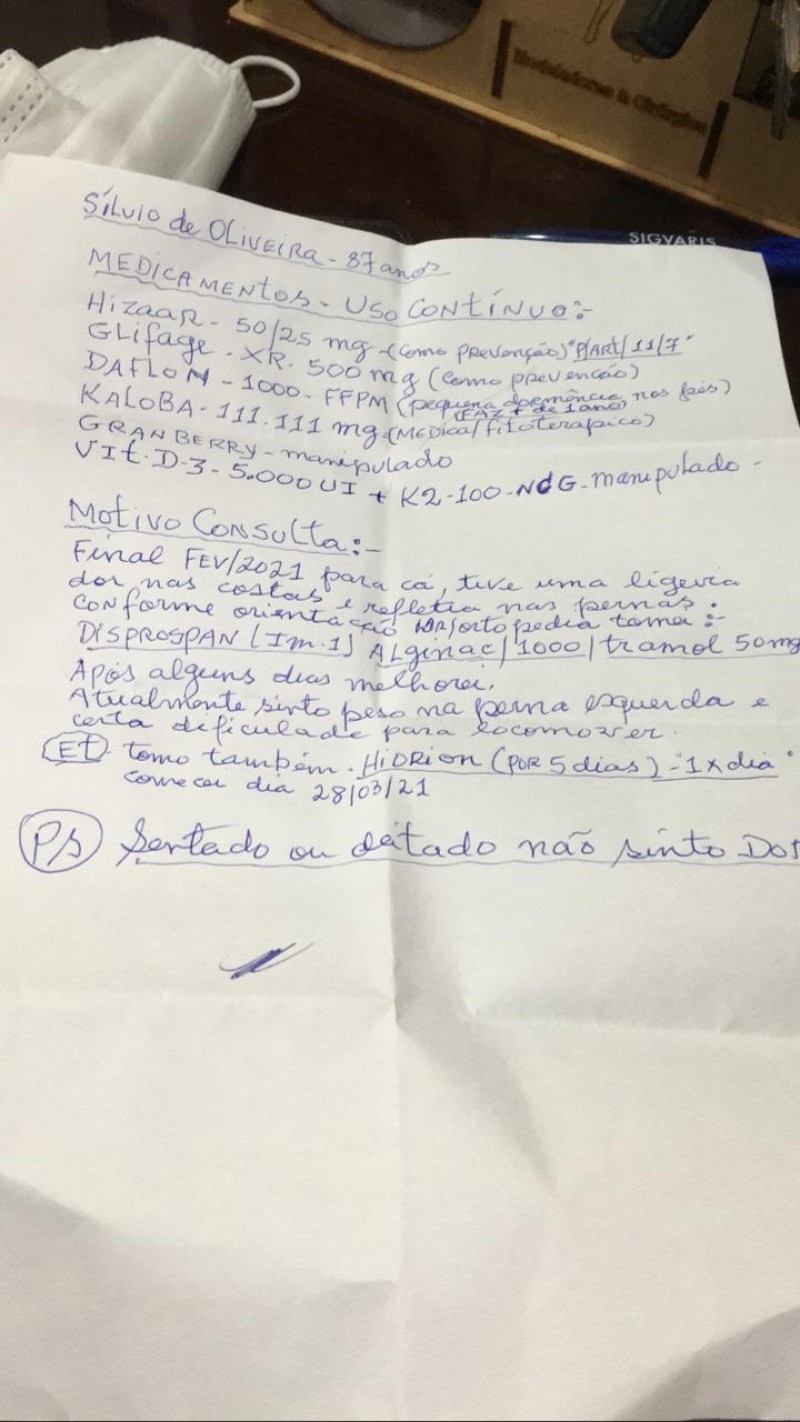 SIGVARIS
Sílvio de OLIVEIRA - 87 anos
MEDICAMENTOS - USO CONTÍNUO:-
HizaaR - 50/25 mg - (como prevenção) "P/ART/11/7"
GLifage - XR. 500 mg (como prevenção)
DAFLON - 1000 - FFPM (pequena nos pés)
(FAZ + de 1 ano)
KALOBA - 111.111 mg - (MEDica/fitoterapico)
GRANBERRY - manipulado
Vit. D-3 - 5.000 UI + K2-100-NCG - manipulado -
Motivo Consulta:-
Final FEV/2021 para cá, tive uma ligeira
dor nas costas e refletia nas pernas.
conforme orientação ortopedia tomei:-
DISPROSPAN (Im.1) ALginac/1000/tramol 50mg
Após alguns dias melhorei.
Atualmente sinto peso na perna esquerda e
certa dificulade para locomover.
Et. tomo também. HiDRion (POR 5 dias) - 1 x dia
comecei dia 28/03/21
PS Sentado ou deitado não sinto Dor